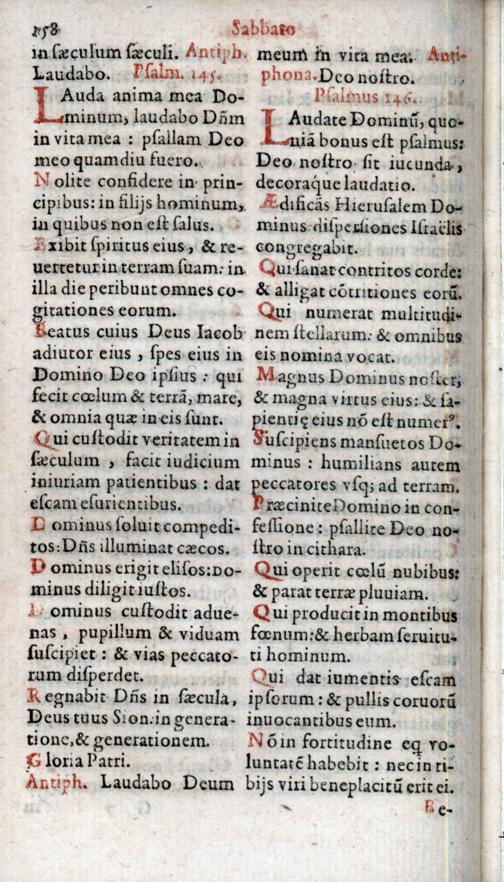 158 Sabbato
in ſæculum ſæculi. Antiph.
Laudabo. Pſalm. 145.
LAuda anima mea Do-
minum, laudabo Dñm
in vita mea : pſallam Deo
meo quamdiu fuero.
Nolite confidere in prin-
cipibus: in filijs hominum,
in quibus non eſt ſalus.
Exibit ſpiritus eius, & re-
uertetur in terram ſuam: in
illa die peribunt omnes co-
gitationes eorum.
Beatus cuius Deus Iacob
adiutor eius, ſpes eius in
Domino Deo ipſius : qui
fecit cœlum & terrã, mare,
& omnia quæ in eis ſunt.
Qui cuſtodit veritatem in
ſæculum, facit iudicium
iniuriam patientibus : dat
eſcam eſurientibus.
Dominus ſoluit compedi-
tos: Dñs illuminat cæcos.
Dominus erigit eliſos: Do-
minus diligit iuſtos.
Dominus cuſtodit adue-
nas, pupillum & viduam
ſuſcipiet : & vias peccato-
rum diſperdet.
Regnabit Dñs in ſæcula,
Deus tuus Sion: in genera-
tione, & generationem.
Gloria Patri.
Antiph. Laudabo Deum
meum in vita mea. Anti-
phona. Deo noſtro.
Pſalmus 146.
LAudate Dominũ, quo-
niã bonus eſt pſalmus:
Deo noſtro ſit iucunda,
decoraq́ue laudatio.
Ædificãs Hieruſalem Do-
minus diſperſiones Iſraëlis
congregabit.
Qui ſanat contritos corde:
& alligat cõtritiones eorũ.
Qui numerat multitudi-
nem ſtellarum: & omnibus
eis nomina vocat.
Magnus Dominus noſter,
& magna virtus eius: & ſa-
pientię eius nõ eſt numerꝰ.
Suſcipiens manſuetos Do-
minus : humilians autem
peccatores vſq; ad terram.
Præcinite Domino in con-
feſſione : pſallite Deo no-
ſtro in cithara.
Qui operit cœlũ nubibus:
& parat terræ pluuiam.
Qui producit in montibus
fœnum: & herbam ſeruitu-
ti hominum.
Qui dat iumentis eſcam
ipſorum : & pullis coruorũ
inuocantibus eum.
Nõ in fortitudine eq́ vo-
luntatẽ habebit : nec in ti-
bijs viri beneplacitũ erit ei.
Be-